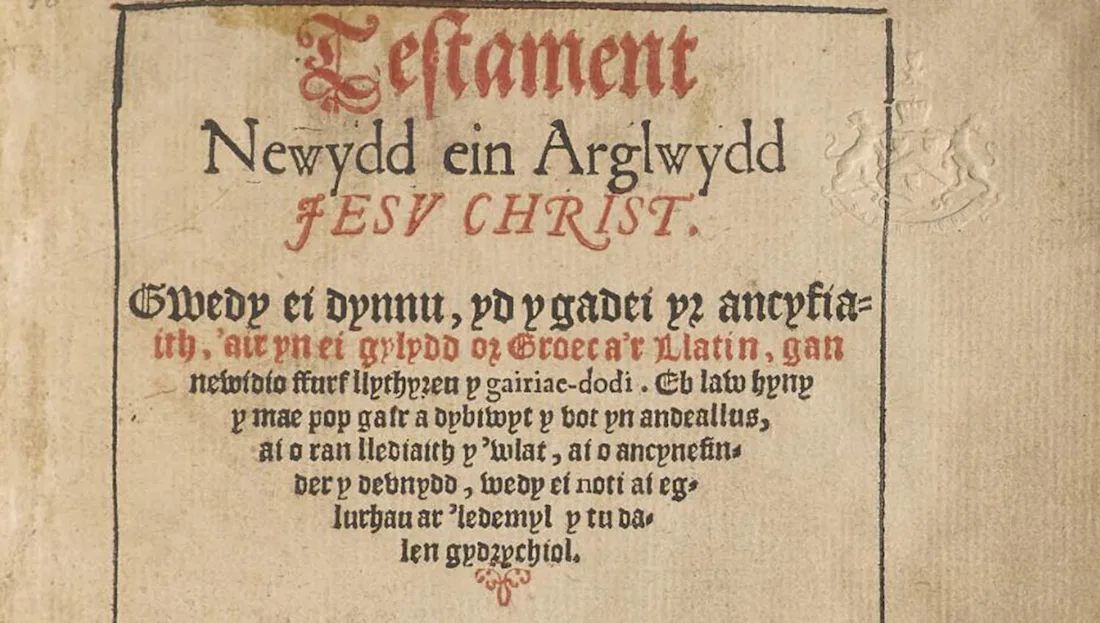 Teſtament
Newydd ein Arglwydd
JESV CHRIST.
Gwedy ei dynnu, yd y gadei yr ancyfia=
ith, 'air yn ei gylydd or Groec a'r Llatin, gan
newidio ffurf llythyreu y gairiae-dodi. Eb law hyny
y mae pop gair a dybiwyt y vot yn andeallus,
ai o ran llediaith y 'wlat, ai o ancynefin-
der y devnydd, wedy ei noti ai eg-
lurhau ar 'ledemyl y tu da-
len gydrychiol.